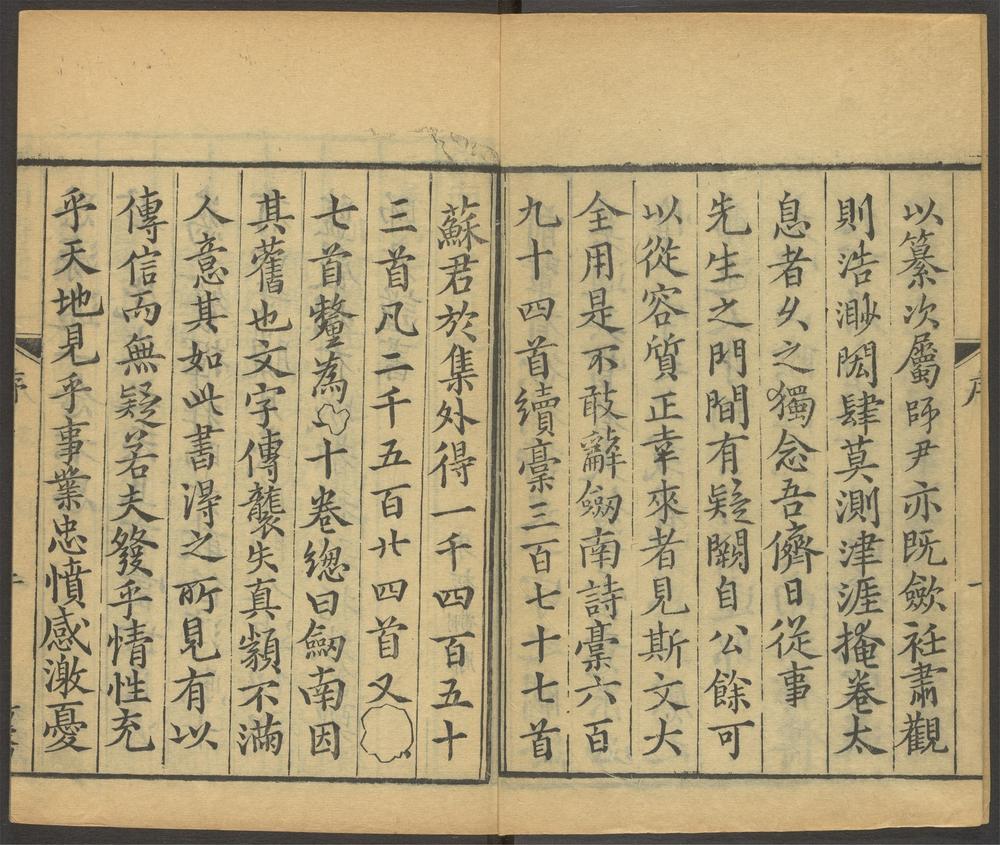 以纂次屬師尹亦既歛衽肅觀
則浩渺閎肆莫測津涯掩卷太
息者久之獨念吾儕日從事
先生之門間有疑闕自公餘可
以從容質正幸來者見斯文大
全用是不敢辭劔南詩稾六百
九十四首續稾三百七十七首
蘇君於集外得一千四百五十
三首凡二千五百廿四首又
七首釐爲十卷總曰劔南因
其舊也文字傳襲失真纇不滿
人意其如此書得之所見有以
傳信而無疑若夫發乎情性充
乎天地見乎事業忠憤感激憂
序